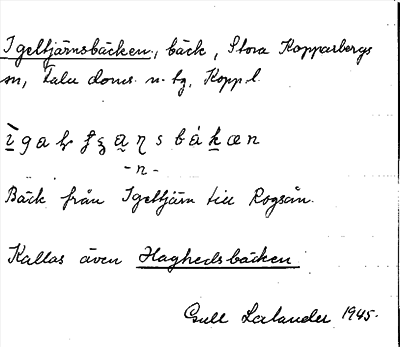 Igeltjärnsbäcken, bäck, Stora Kopparbergs
sn, Falu doms. n. tg, Koppl.
-n-
Bäck från Igeltjärn till Rogsån.
Kallas även Haghedsbäcken
Gull Lalander 1945.